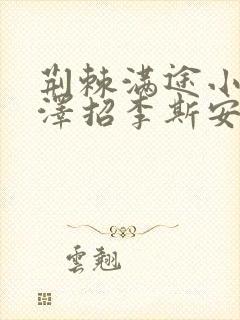 荆棘满途小
澤招李斯安
雲翹